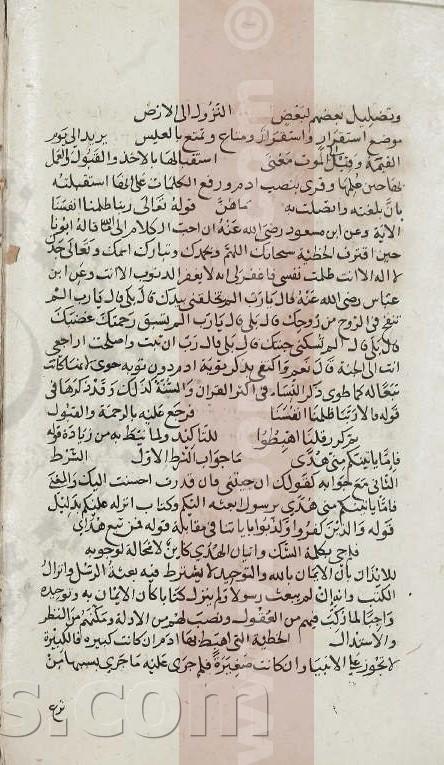 وتضليل بعضهم لبعض النزول الى الارض
موضع استقرار واستقرار ومتاع وتمتع بالعيش يريد الى يوم
القيمة وقيل الى الموت معنى استقبالها بالاخذ والقبول والعمل
بها حين علمها وقرئ بنصب ادم ورفع الكلمات على انها استقبلته
بان بلغته واتصلت به ما هن قوله تعالى ربنا ظلمنا انفسنا
الاية وعن ابن مسعود رضي الله عنه ان احب الكلام الى الله ما قاله ابونا
حين اقترف الخطية سبحانك اللهم وبحمدك وتبارك اسمك وتعالى جدك
لا اله الا انت ظلمت نفسي فاغفر لي انه لا يغفر الذنوب الا انت وعن ابن
عباس رضي الله عنه قال يا رب الم تخلقني بيدك قال بلى قال يا رب الم
تنفخ في الروح من روحك قال بلى قال يا رب الم تسبق رحمتك غضبك
قال بلى قال الم تسكني جنتك قال بلى قال رب ان تبت واصلحت اراجعي
انت الى الجنة قال نعم واكتفى بذكر توبة ادم دون توبة حوى لانها كانت
تبعا له كما طوى ذكر النساء في اكثر القران والسنة لذلك وقد ذكرها في
قوله قالا ربنا ظلمنا انفسنا فرجع عليه بالرحمة والقبول
لم كرر قلنا اهبطوا للتاكيد ولما نيط به من زيادة قوله
فاما ياتينكم مني هدى ما جواب الشرط الاول الشرط
الثاني مع جوابه كقولك ان جئتني فان قدرت احسنت اليك والمعنى
فاما ياتينكم مني هدى برسول ابعثه اليكم وكتاب انزله عليكم بدليل
قوله والذين كفروا وكذبوا باياتنا في مقابلة قوله فمن تبع هداي
فلم جئ بكلمة الشك واتيان الهدى كاين لا محالة لوجوبه
للايذان بان الايمان بالله والتوحيد لا يشترط فيه بعثة الرسل وانزال
الكتب وانه ان لم يبعث رسولا ولم ينزل كتابا كان الايمان به وتوحيده
واجبا لما ركب فيهم من العقول ونصب لهم من الادلة ومكنهم من النظر
والاستدلال الخطية التي اهبط بها ادم ان كانت كبيرة فالكبيرة
لا تجوز على الانبيا وان كانت صغيرة فلم جرى عليه ما جرى بسببها من
نزع
s.com